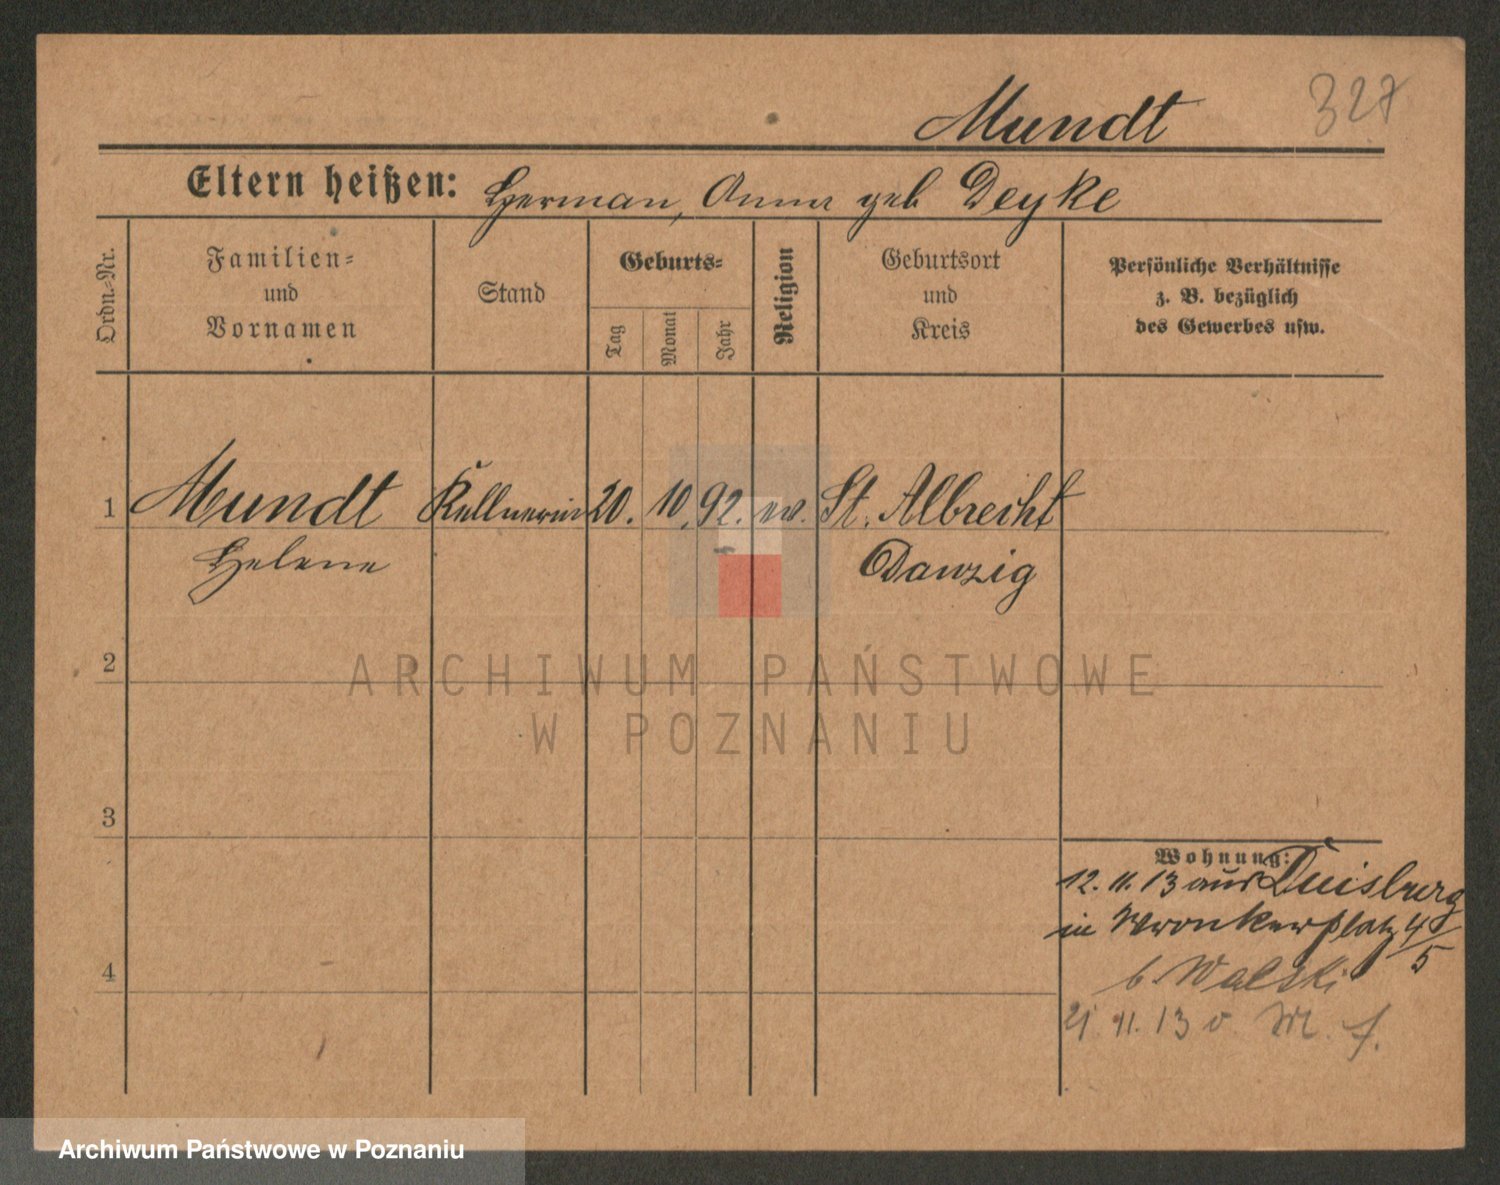 Mundt
327
Eltern heißen: Herman, Anna geb Deyke
Ordn.-Nr.
Familien-
und
Vornamen
Stand
Geburts-
Tag
Monat
Jahr
Religion
Geburtsort
und
Kreis
Persönliche Verhältnisse
z. B. bezüglich
des Gewerbes usw.
1 Mundt Kellnerin 20. 10. 92. ev. St. Albrecht
Helene Danzig
2
ARCHIWUM PAŃSTWOWE
W POZNANIU
3
Wohnung:
12. 11. 13 aus Duisburg
in Wronkerplatz 4/5
b Walski
4
21. 11. 13 v.
Archiwum Państwowe w Poznaniu